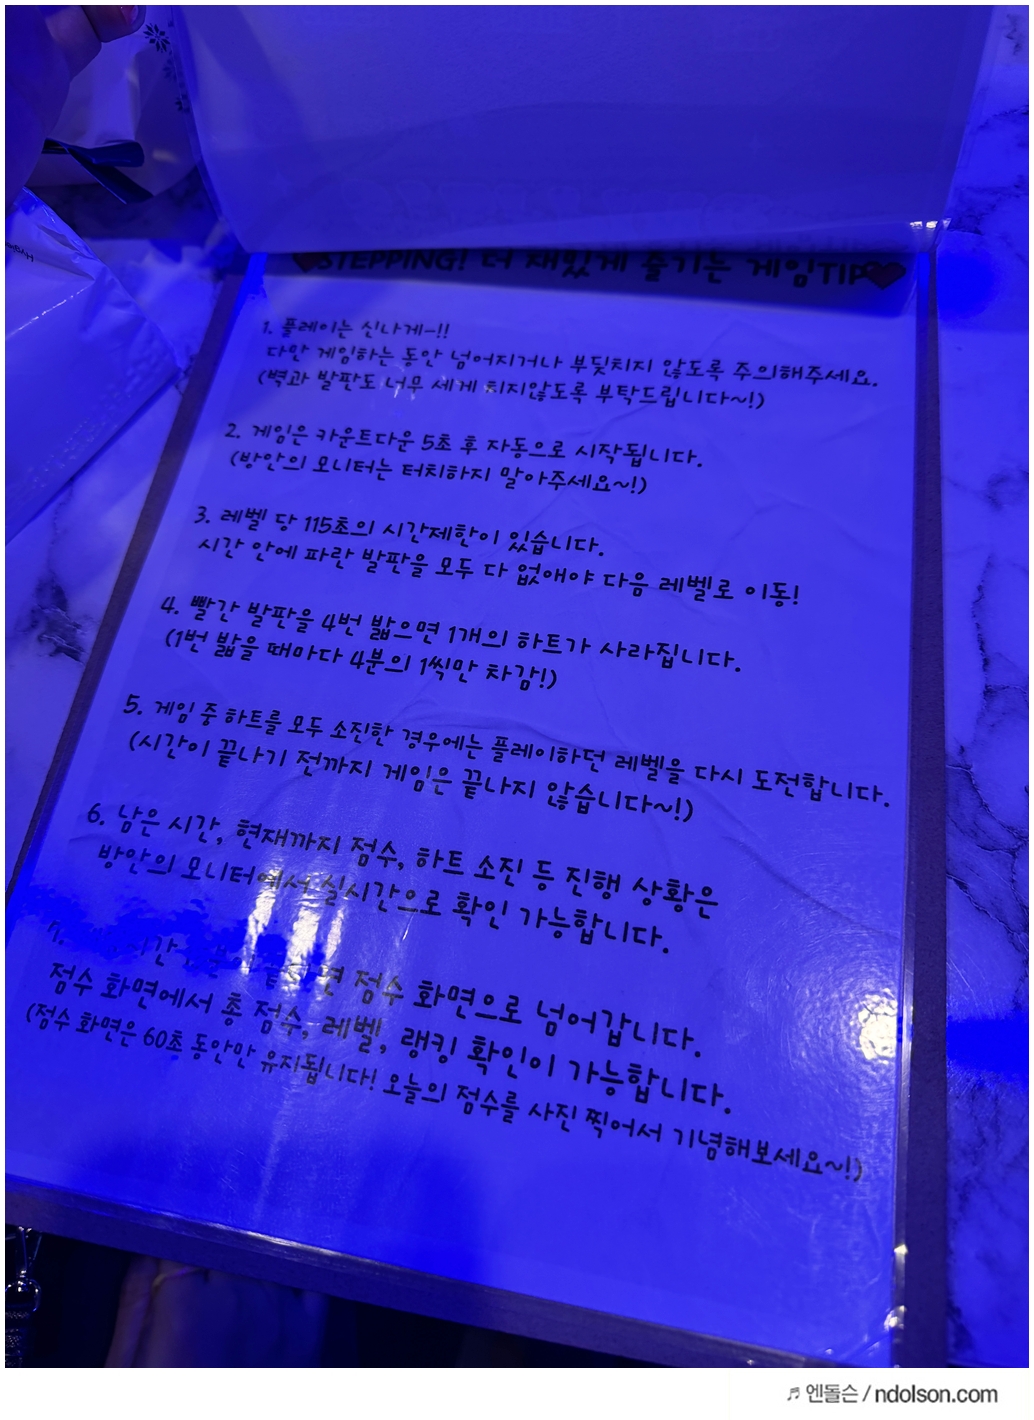 STEPPING! 더 재밌게 즐기는 게임TIP
1. 플레이는 신나게~!!
다만 게임하는 동안 넘어지거나 부딪치지 않도록 주의해주세요.
(벽과 발판도 너무 세게 치지않도록 부탁드립니다~!)
2. 게임은 카운트다운 5초 후 자동으로 시작됩니다.
(방안의 모니터는 터치하지 말아주세요~!)
3. 레벨 당 115초의 시간제한이 있습니다.
시간 안에 파란 발판을 모두 다 없애야 다음 레벨로 이동!
4. 빨간 발판을 4번 밟으면 1개의 하트가 사라집니다.
(1번 밟을 때마다 4분의 1씩만 차감!)
5. 게임 중 하트를 모두 소진한 경우에는 플레이하던 레벨을 다시 도전합니다.
(시간이 끝나기 전까지 게임은 끝나지 않습니다~!)
6. 남은 시간, 현재까지 점수, 하트 소진 등 진행 상황은
방안의 모니터에서 실시간으로 확인 가능합니다.
시간 점수 화면으로 넘어갑니다.
점수 화면에서 총 점수, 레벨, 랭킹 확인이 가능합니다.
(점수 화면은 60초 동안만 유지됩니다! 오늘의 점수를 사진 찍어서 기념해보세요~!)
엔돌슨 / ndolson.com